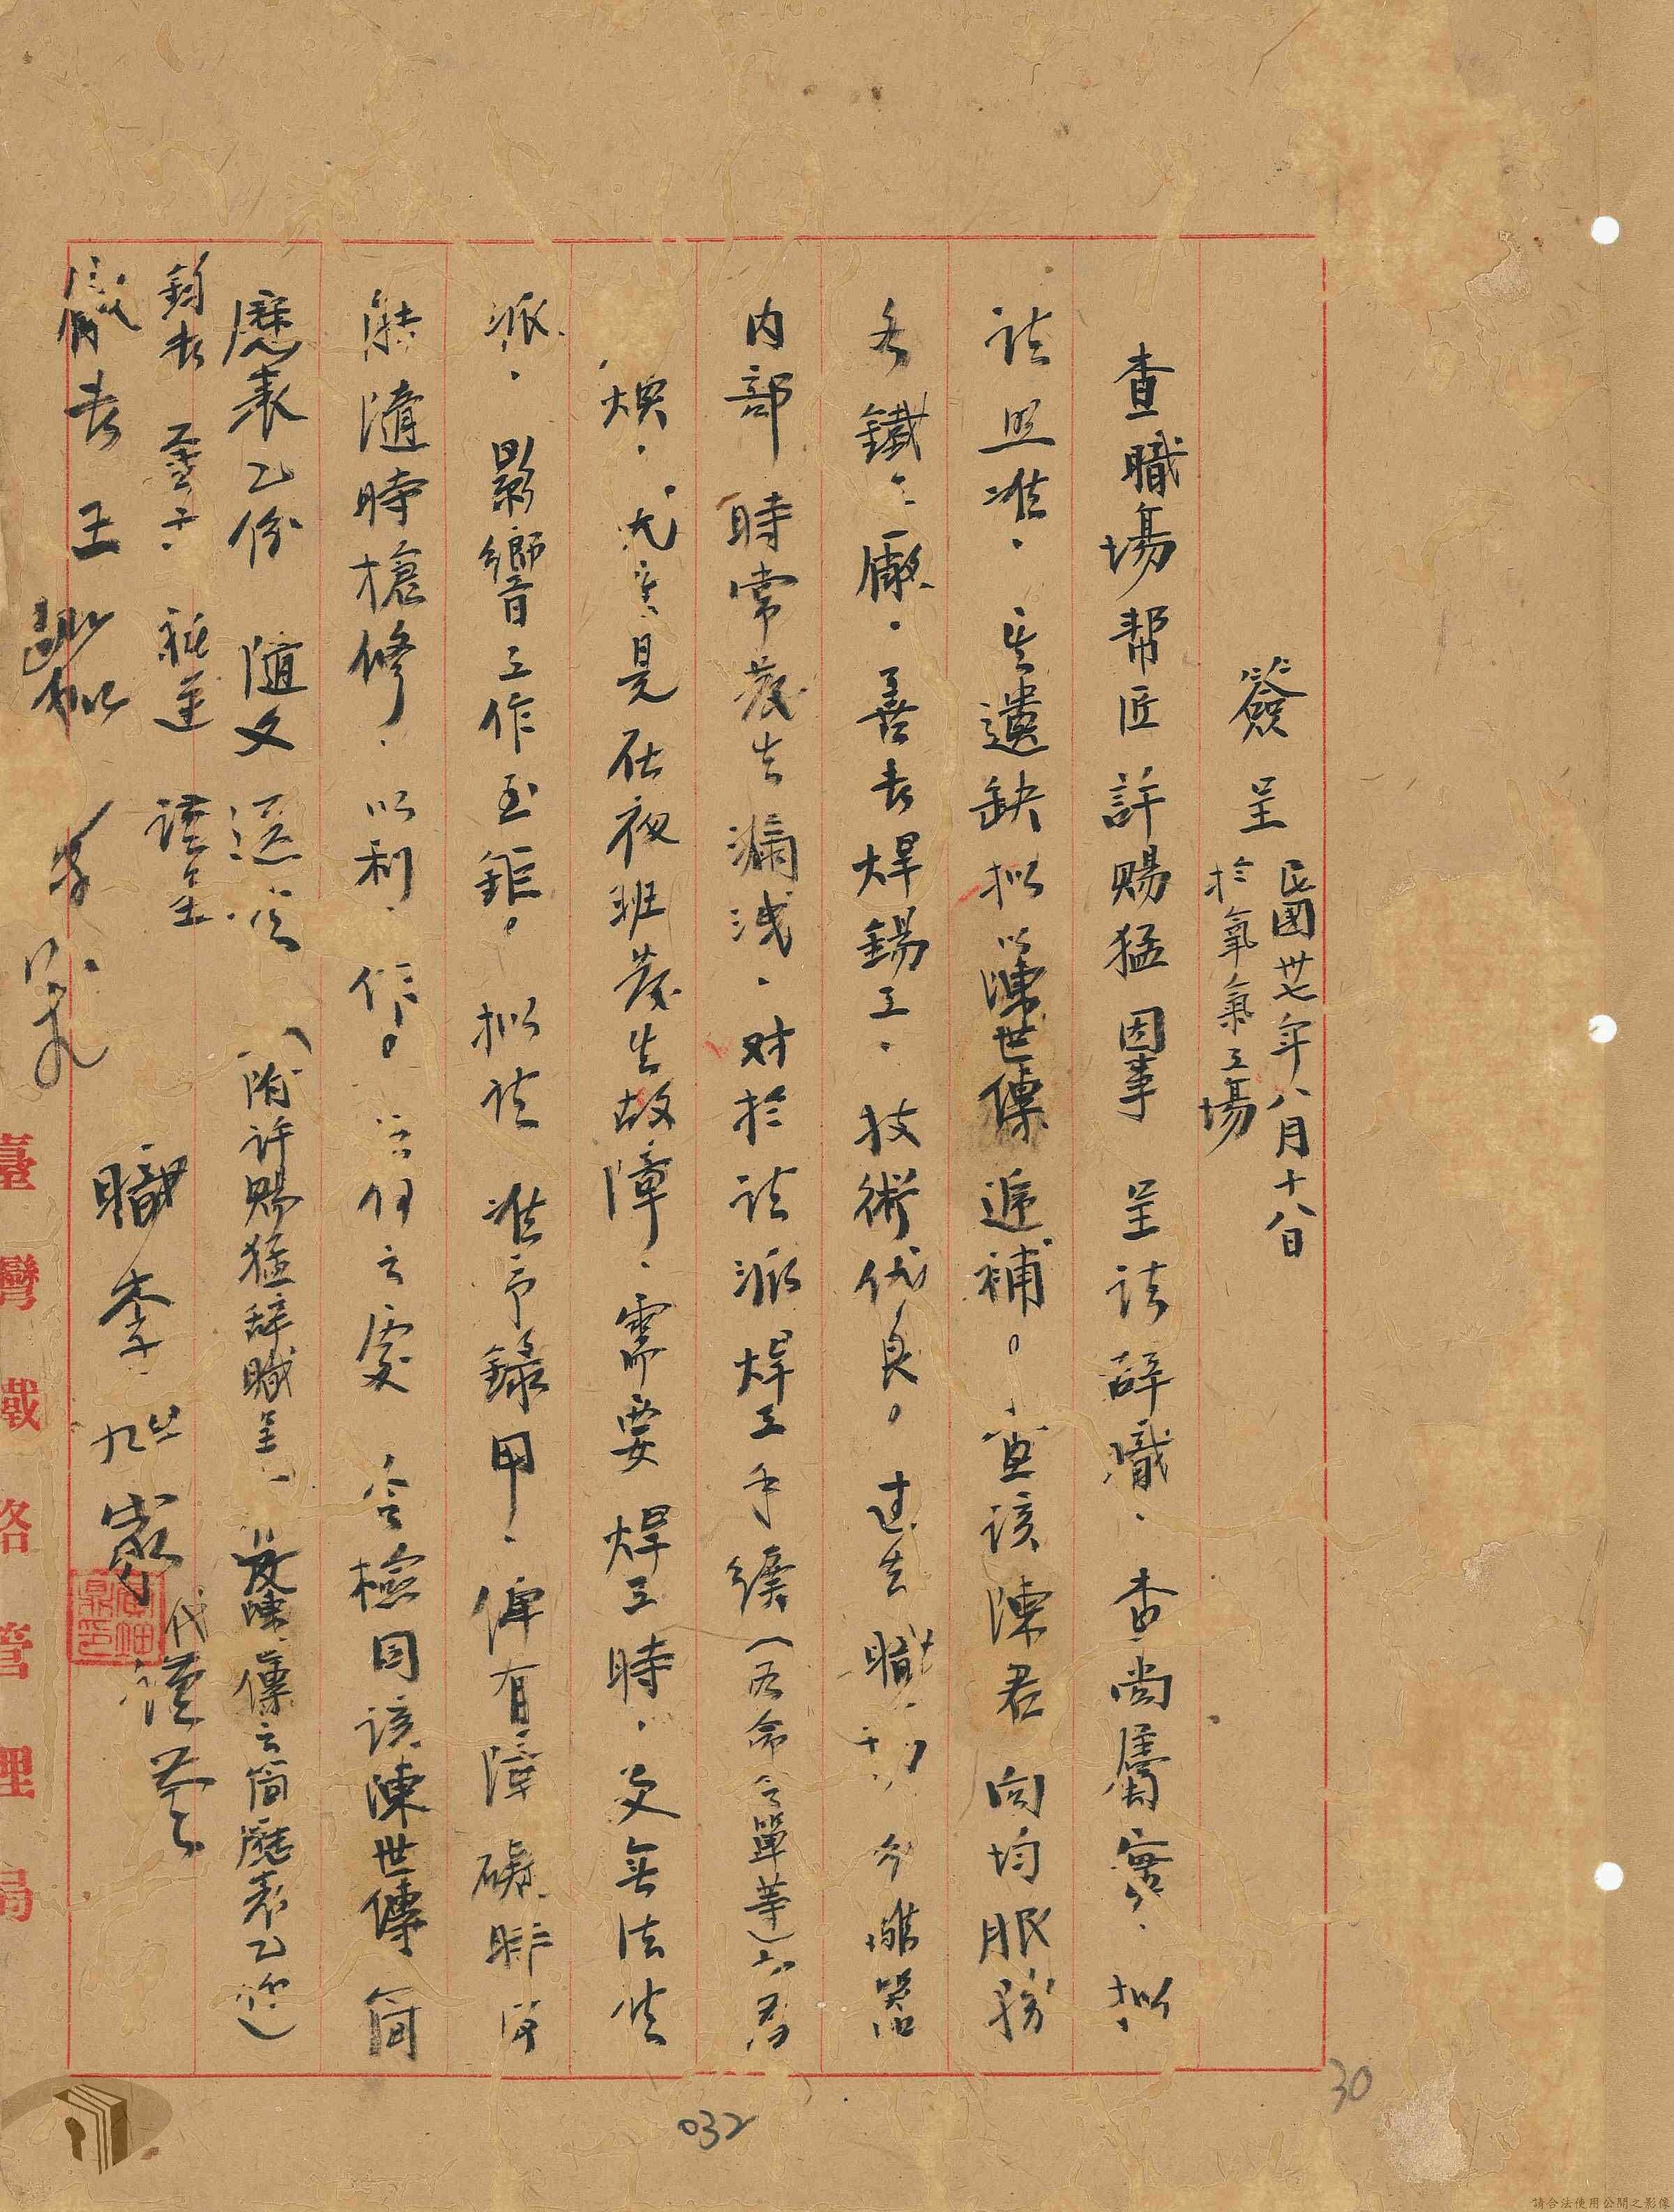 簽呈 民國卅七年八月十八日
於氧氣工場
查職場幫匠許賜猛因事呈請辭職、查尚屬實、拟
請照准、其遺缺拟以陳世傳遞補。查該陳君向均服務
各鐵工廠、善長焊錫工、技術优良。过去職場 今 機器
內部時常發生漏洩、对於請派焊工手續(如命令單等)亦為
煩、尤其是在夜班發生故障、需要焊工時、更無法ателей派、
影響工作至鉅。拟請准予錄用、俾有障碍時得
能隨時搶修、以利 作。 何之處 合檢同該陳世傳簡
歷表乙份隨文送呈
(附許賜猛辭職呈 及陳世傳之簡歷表乙份)
鈞長 核 謹呈
廠長王
職 李旭家 代
臺灣鐵路管理局
032
30
請合法使用公開之影像